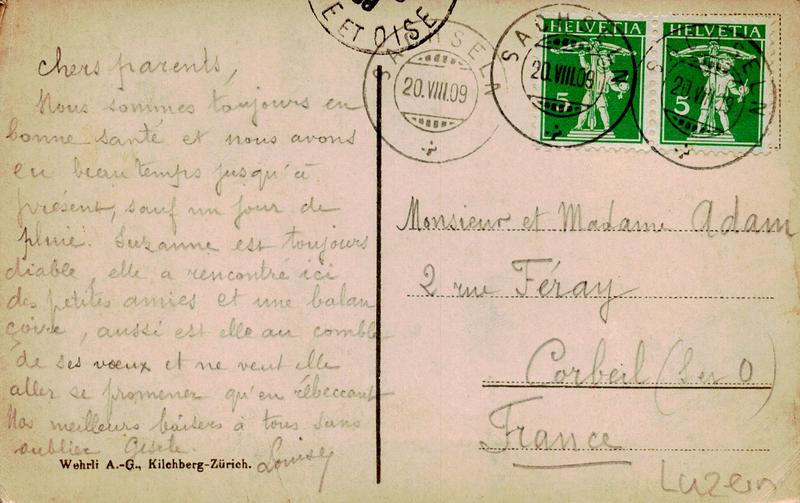 E ET OISE
SACHSELN
20.VIII.09
SACHSELN
20.VIII.09
SACHSELN
20.VIII.09
HELVETIA
5
HELVETIA
5
chers parents,
Nous sommes toujours en
bonne santé et nous avons
eu beau temps jusqu'à
présent, sauf un jour de
pluie. Suzanne est toujours
diable, elle a rencontré ici
des petites amies et une balan
çoire, aussi est elle au comble
de ses vœux et ne veut elle
aller se promener qu'en rébeccant
Nos meilleurs baisers à tous sans
oublier Gisele.
Louise
Wehrli A.-G., Kilchberg-Zürich.
Monsieur et Madame Adam
2 rue Féray
Corbeil (S et O)
France
Luzern